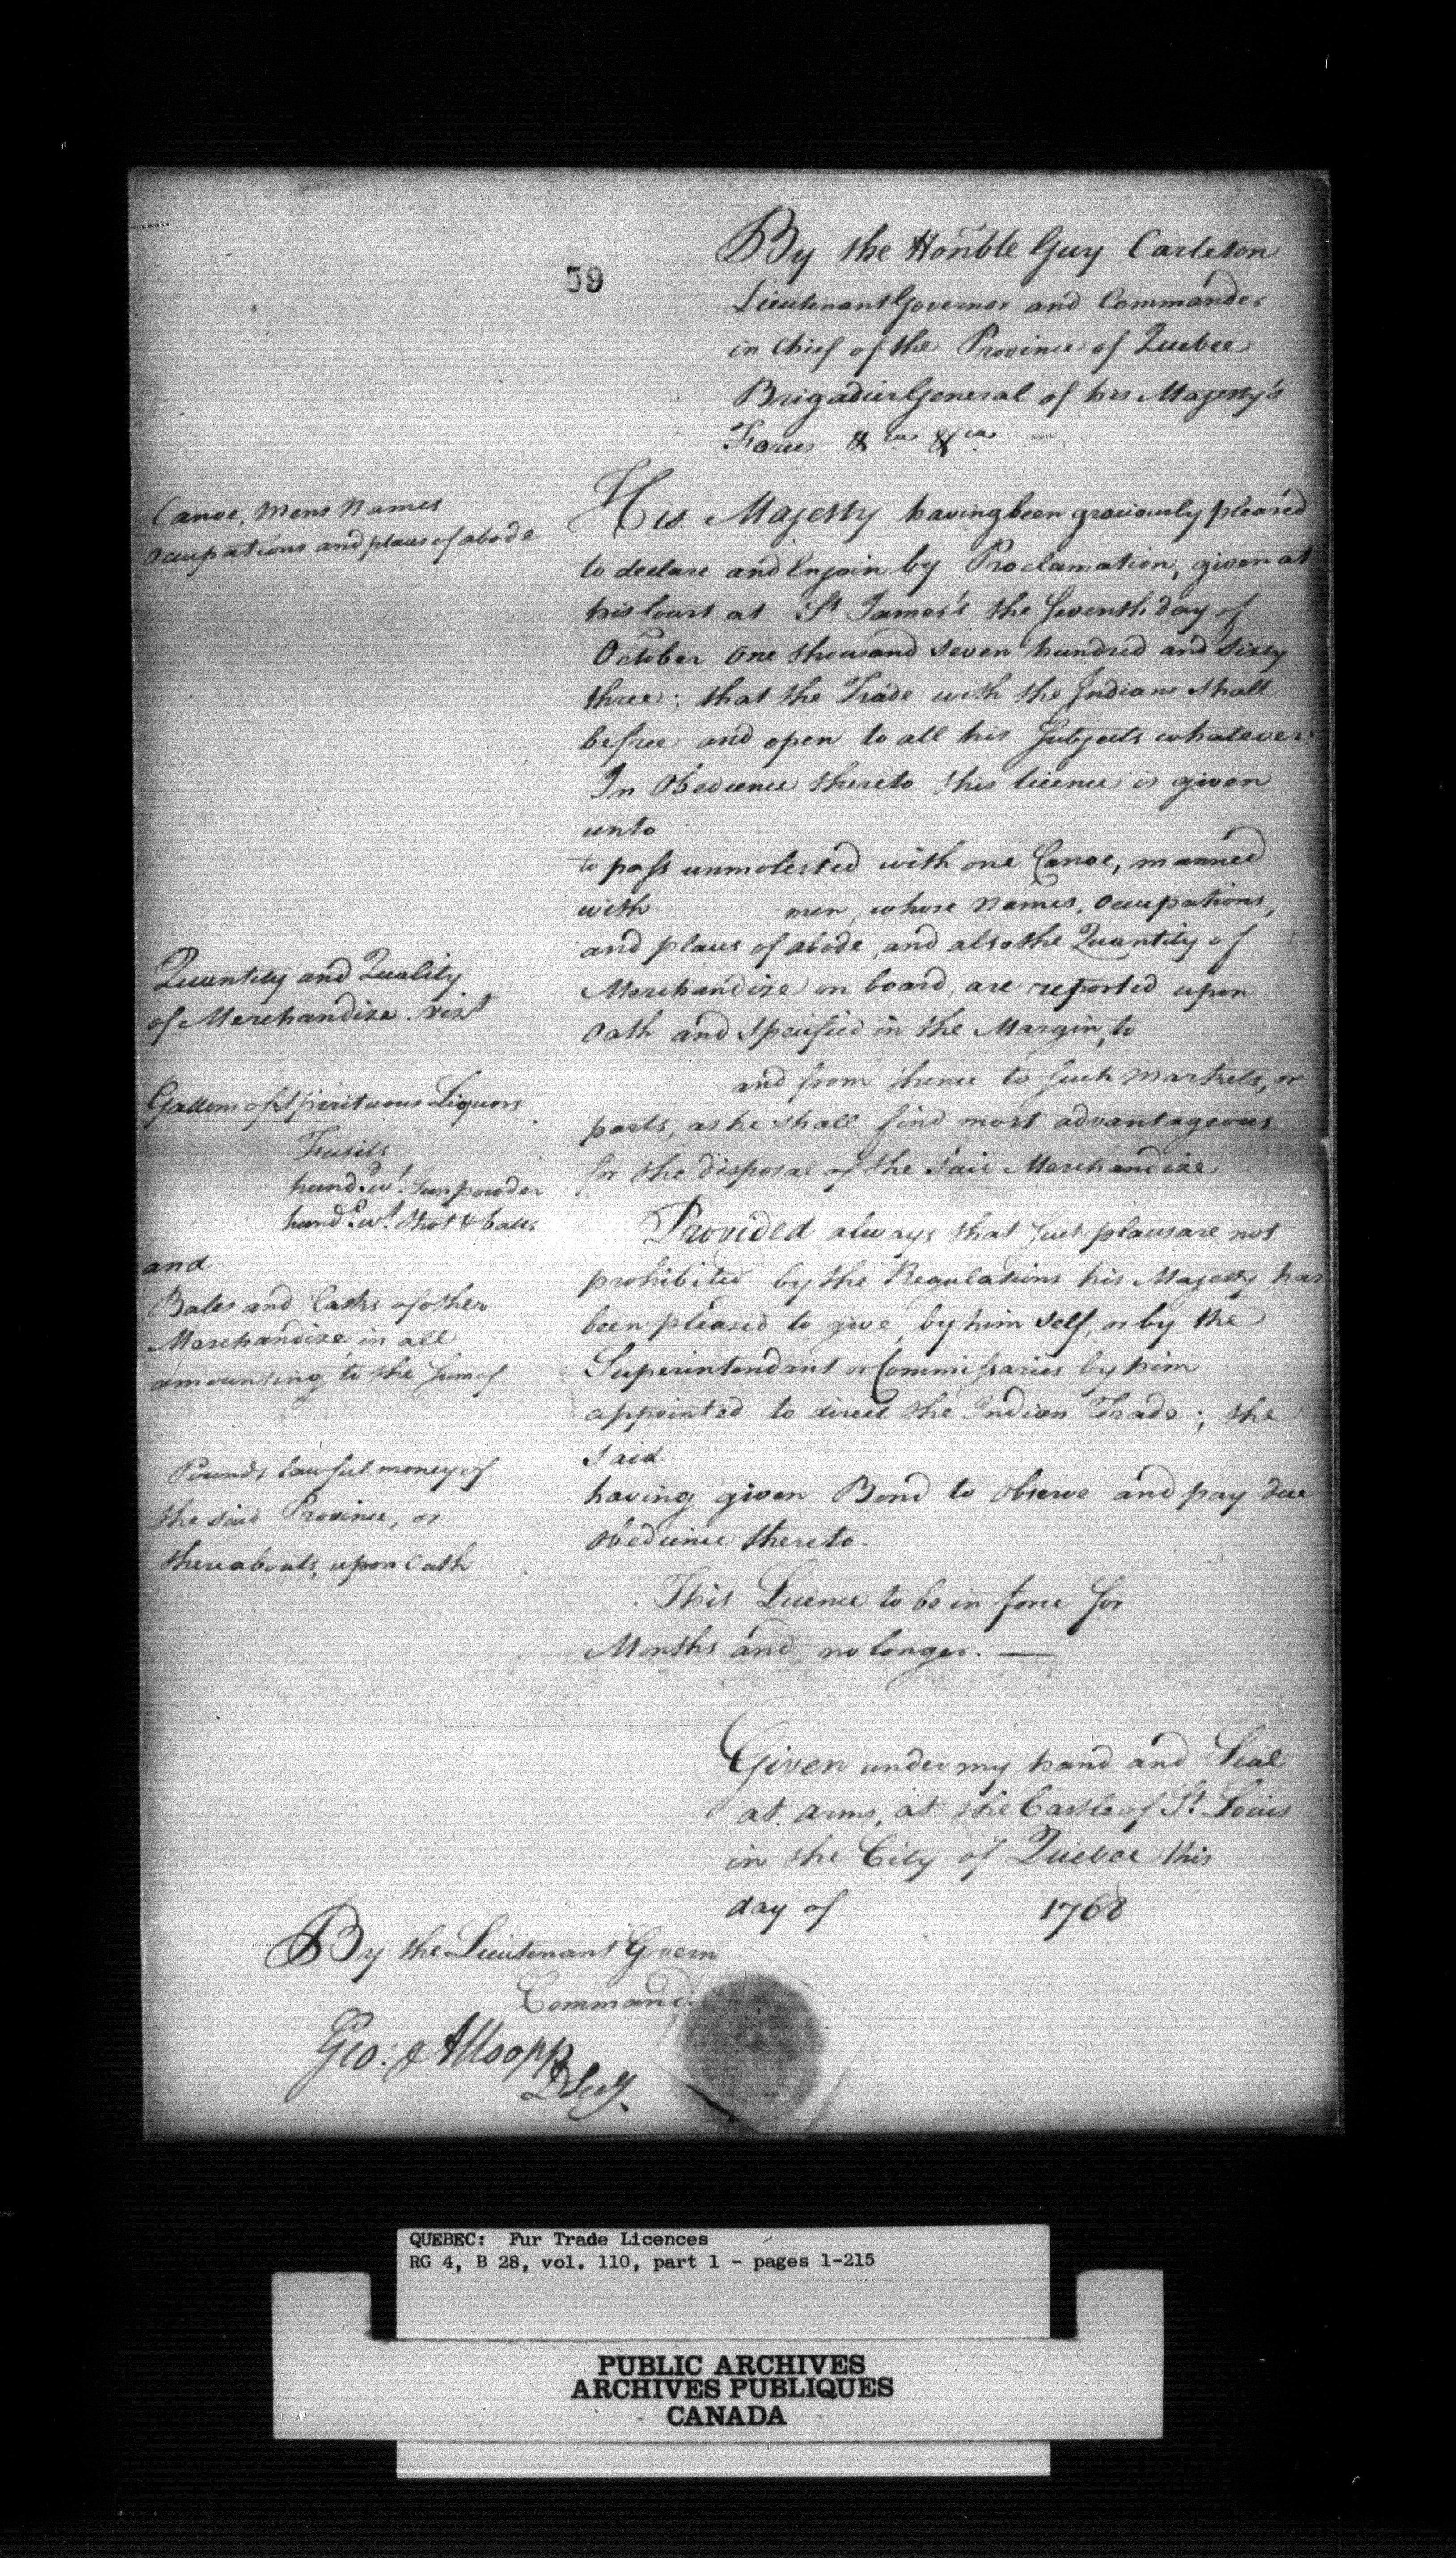 59
By the Honble Guy Carleton
Lieutenant Governor and Commander
in Chief of the Province of Quebec
Brigadier General of his Majesty's
Forces &ca &ca —
Canoe, Mens Names
Occupations and places of abode
His Majesty having been graciously pleas'd
to declare and Enjoin by Proclamation, given at
his Court at St. James's the Seventh day of
October One thousand seven hundred and Sixty
three; that the Trade with the Indians shall
be free and open to all his Subjects whatever.
In Obedience thereto this licence is given
unto
to pass unmolested with one Canoe, manned
with men, whose Names, Occupations,
and places of abode, and also the Quantity of
Merchandize on board, are reported upon
Oath and Specified in the Margin, to
and from thence to such Markets, or
parts, as he shall find most advantageous
for the disposal of the said Merchandize
Quantity and Quality
of Merchandize. vizt
Gallons of Spirituous Liquors
Fusils
hund.d wt. Gunpowder
hund.d wt. Shot & balls
and
Bales and Casks of other
Merchandize, in all
amounting to the Sum of
Pounds lawful money of
the said Province, or
thereabouts, upon Oath
Provided always that such places are not
prohibited by the Regulations his Majesty has
been pleased to give, by him self, or by the
Superintendant or Commissaries by him
appointed to direct the Indian Trade; the
said
having given Bond to observe and pay due
obedience thereto.
This Licence to be in force for
Months and no longer. —
Given under my hand and Seal
at arms, at the Castle of St. Louis
in the City of Quebec this
day of 1768
By the Lieutenant Govern
Command.
Geo: Allsopp
D Secy.
QUEBEC: Fur Trade Licences
RG 4, B 28, vol. 110, part 1 - pages 1-215
PUBLIC ARCHIVES
ARCHIVES PUBLIQUES
CANADA